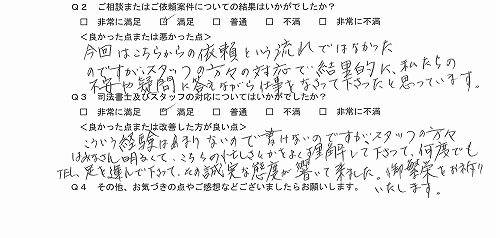 Q2 ご相談またはご依頼案件についての結果はいかがでしたか?
□ 非常に満足 ☑ 満足 □ 普通 □ 不満 □ 非常に不満
<良かった点または悪かった点>
今回はこちらからの依頼という流れではなかった
のですがスタッフの方々の対応で結果的に、私たちの
不安や疑問に答えながら仕事をなさって下さったと思っています。
Q3 司法書士及びスタッフの対応についてはいかがでしたか?
□ 非常に満足 ☑ 満足 □ 普通 □ 不満 □ 非常に不満
<良かった点または改善した方が良い点>
こういう経験はあまりないので書けないのですがスタッフの方々
はみなさん明るくて、こちらの忙しさとかをよく理解して下さって、何度でも
TEL、足を運んで下さって、その誠実な態度が響いて来ました。御繁栄をお祈り
いたします。
Q4 その他、お気づきの点やご感想などございましたらお願いします。